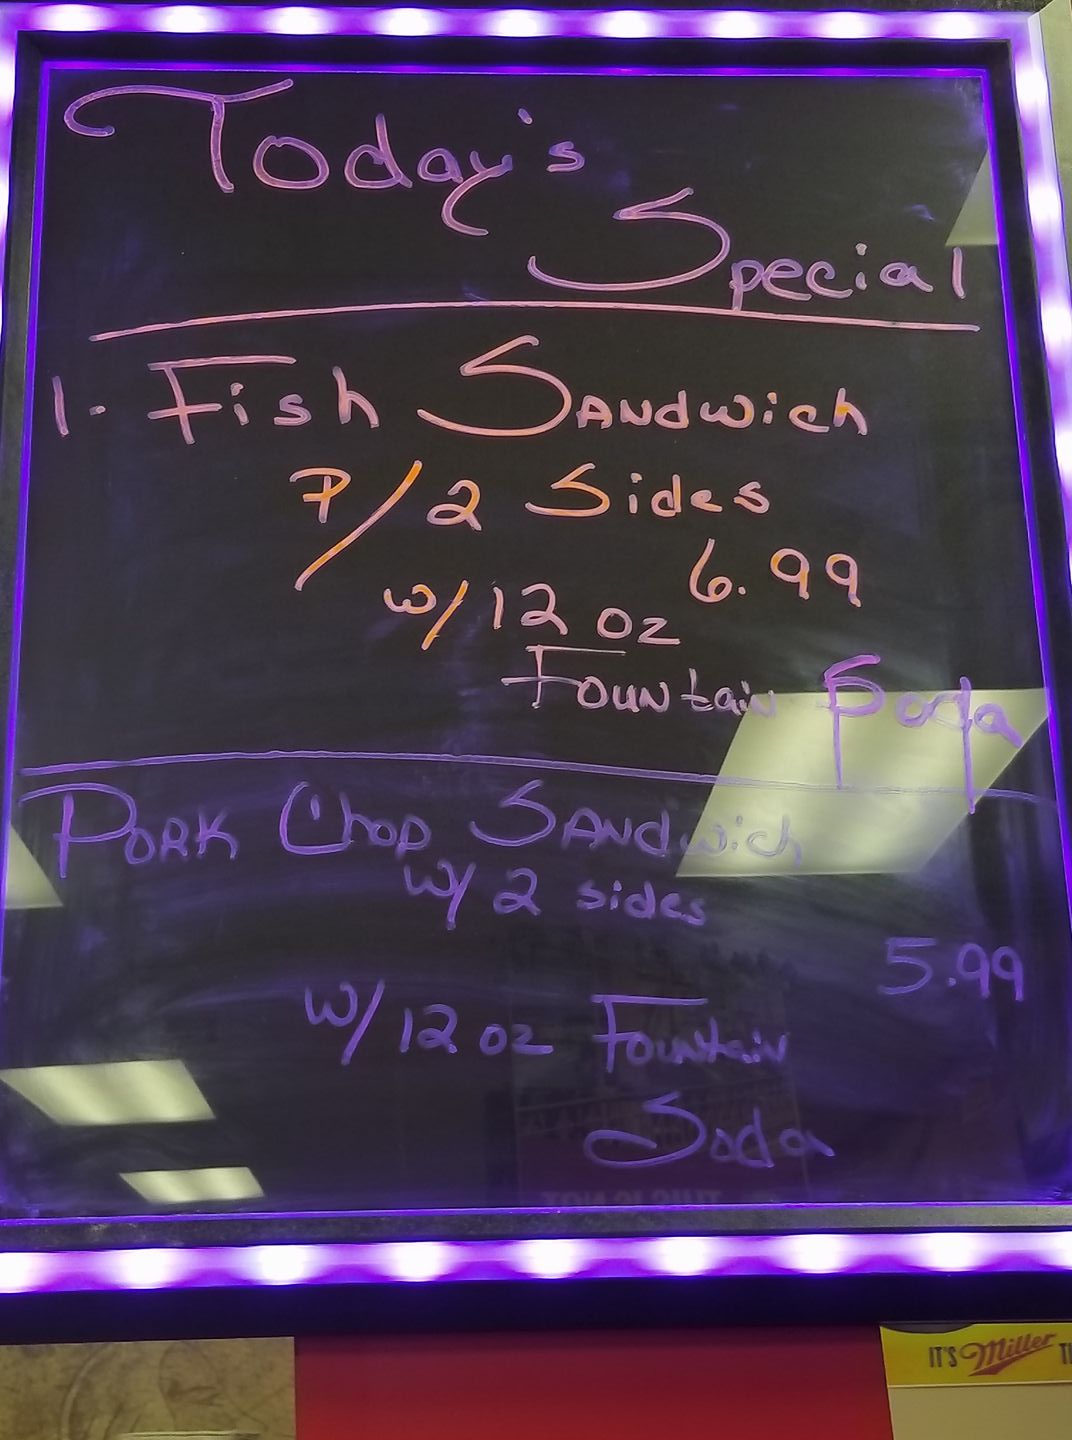 Today's
Special
1. Fish Sandwich
P/2 Sides
6.99
w/12 oz
Fountain Soda
Pork Chop Sandwich
w/ 2 sides
5.99
w/12 oz Fountain
Soda
IT'S Miller